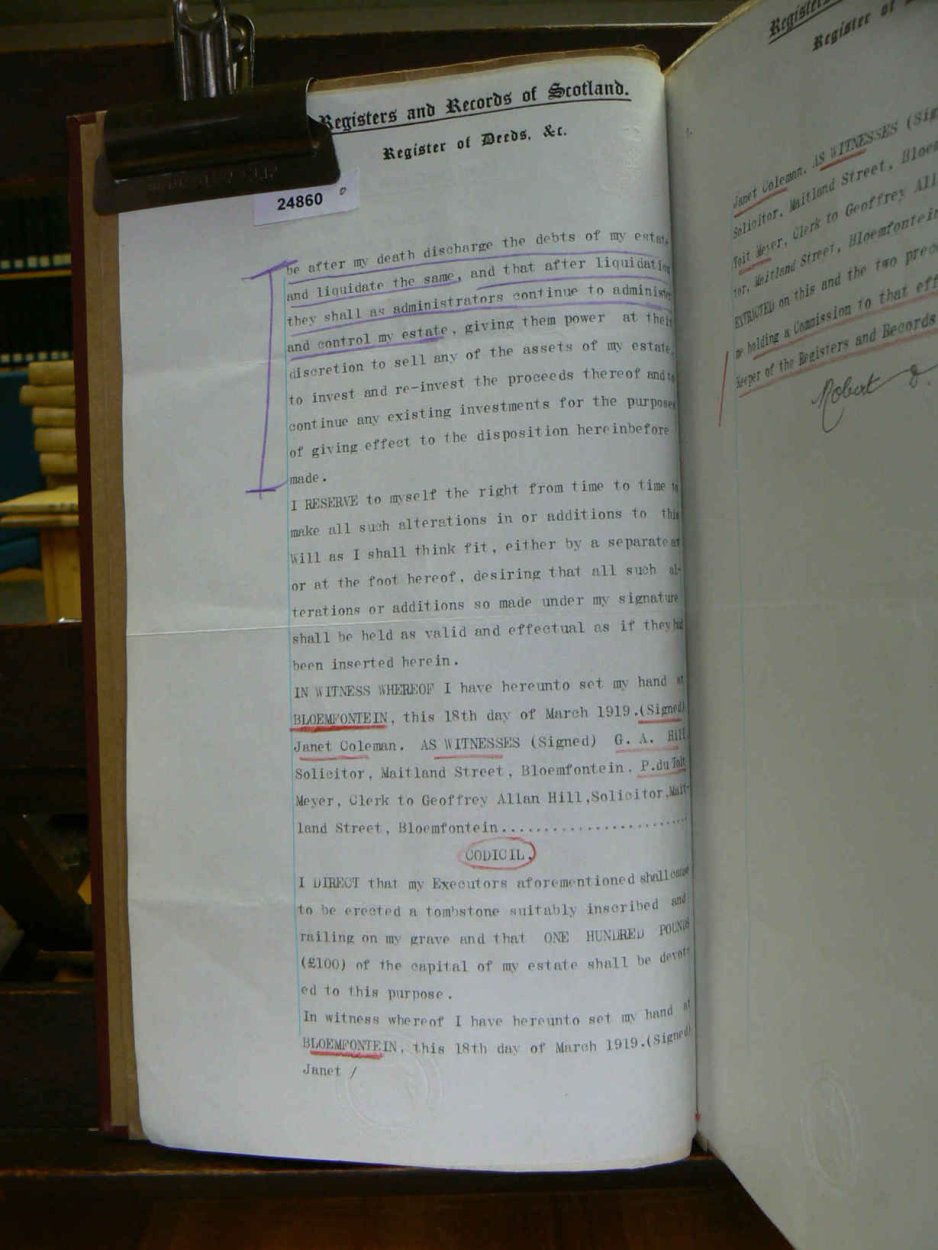 Registers and Records of Scotland.
Register of Deeds, &c.
24860
be after my death discharge the debts of my estate
and liquidate the same, and that after liquidation
they shall as administrators continue to administer
and control my estate, giving them power at their
discretion to sell any of the assets of my estate,
to invest and re-invest the proceeds thereof and to
continue any existing investments for the purposes
of giving effect to the disposition hereinbefore
made.
I RESERVE to myself the right from time to time to
make all such alterations in or additions to this
Will as I shall think fit, either by a separate
or at the foot hereof, desiring that all such al-
terations or additions so made under my signature
shall be held as valid and effectual as if they had
been inserted herein.
IN WITNESS WHEREOF I have hereunto set my hand at
BLOEMFONTEIN, this 18th day of March 1919.(Signed)
Janet Coleman. AS WITNESSES (Signed) G. A. Hill,
Solicitor, Maitland Street, Bloemfontein. P.du Toit
Meyer, Clerk to Geoffrey Allan Hill,Solicitor,Mait-
land Street, Bloemfontein......................
CODICIL.
I DIRECT that my Executors aforementioned shall cause
to be erected a tombstone suitably inscribed and
railing on my grave and that ONE HUNDRED POUNDS
(£100) of the capital of my estate shall be devot-
ed to this purpose.
In witness whereof I have hereunto set my hand at
BLOEMFONTEIN, this 18th day of March 1919.(Signed)
Janet /
Registers
Register of
Janet Coleman. AS WITNESSES (Sig
Solicitor, Maitland Street, Bloem
Toit Meyer, Clerk to Geoffrey All
tor, Maitland Street, Bloemfontein
EXTRACTED on this and the two prec
me holding a Commission to that eff
Keeper of the Registers and Records
Robert